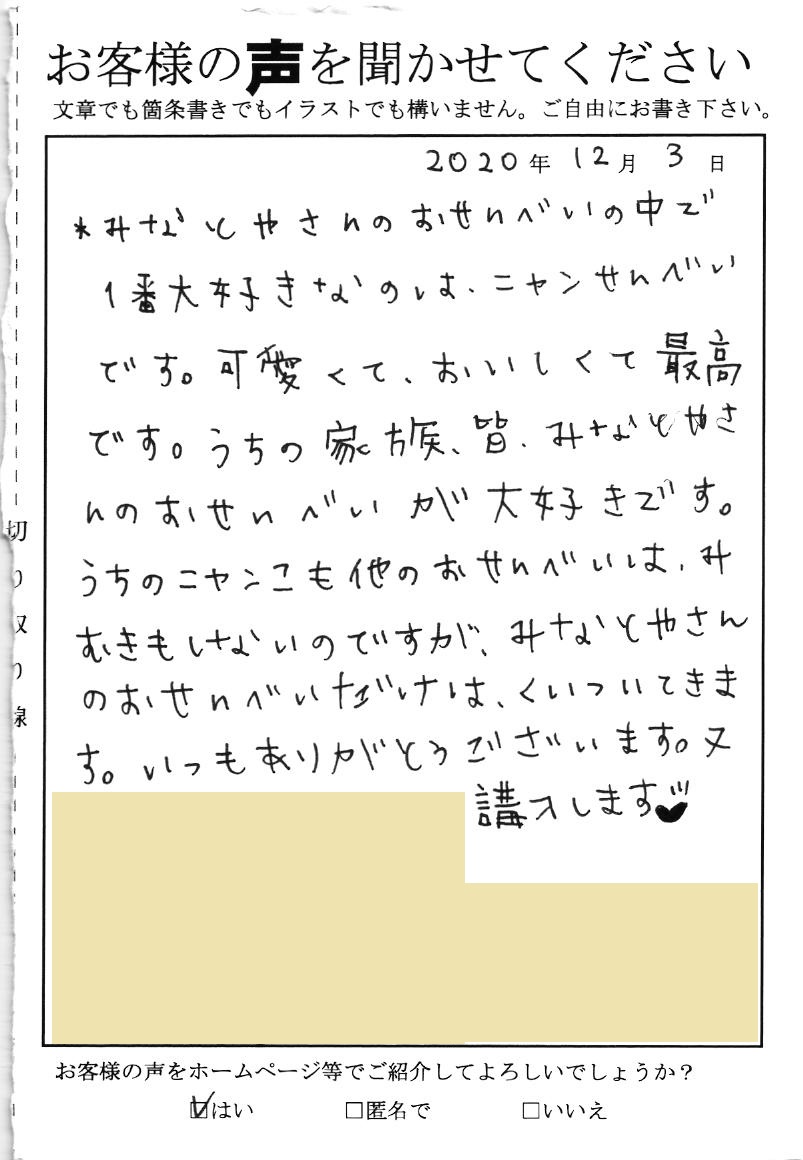 お客様の声を聞かせてください
文章でも箇条書きでもイラストでも構いません。ご自由にお書き下さい。
2020年 12月 3日
*みなとやさんのおせんべいの中で
1番大好きなのは、ニャンせんべい
です。可愛くて、おいしくて最高
です。うちの家族、皆、みなとやさ
んのおせんべいが大好きです。
うちのニャンコも他のおせんべいは、み
むきもしないのですが、みなとやさん
のおせんべいだけは、くいついてきま
す。いつもありがとうございます。又
講入します♥
切り取り線
お客様の声をホームページ等でご紹介してよろしいでしょうか？
☑はい □匿名で □いいえ